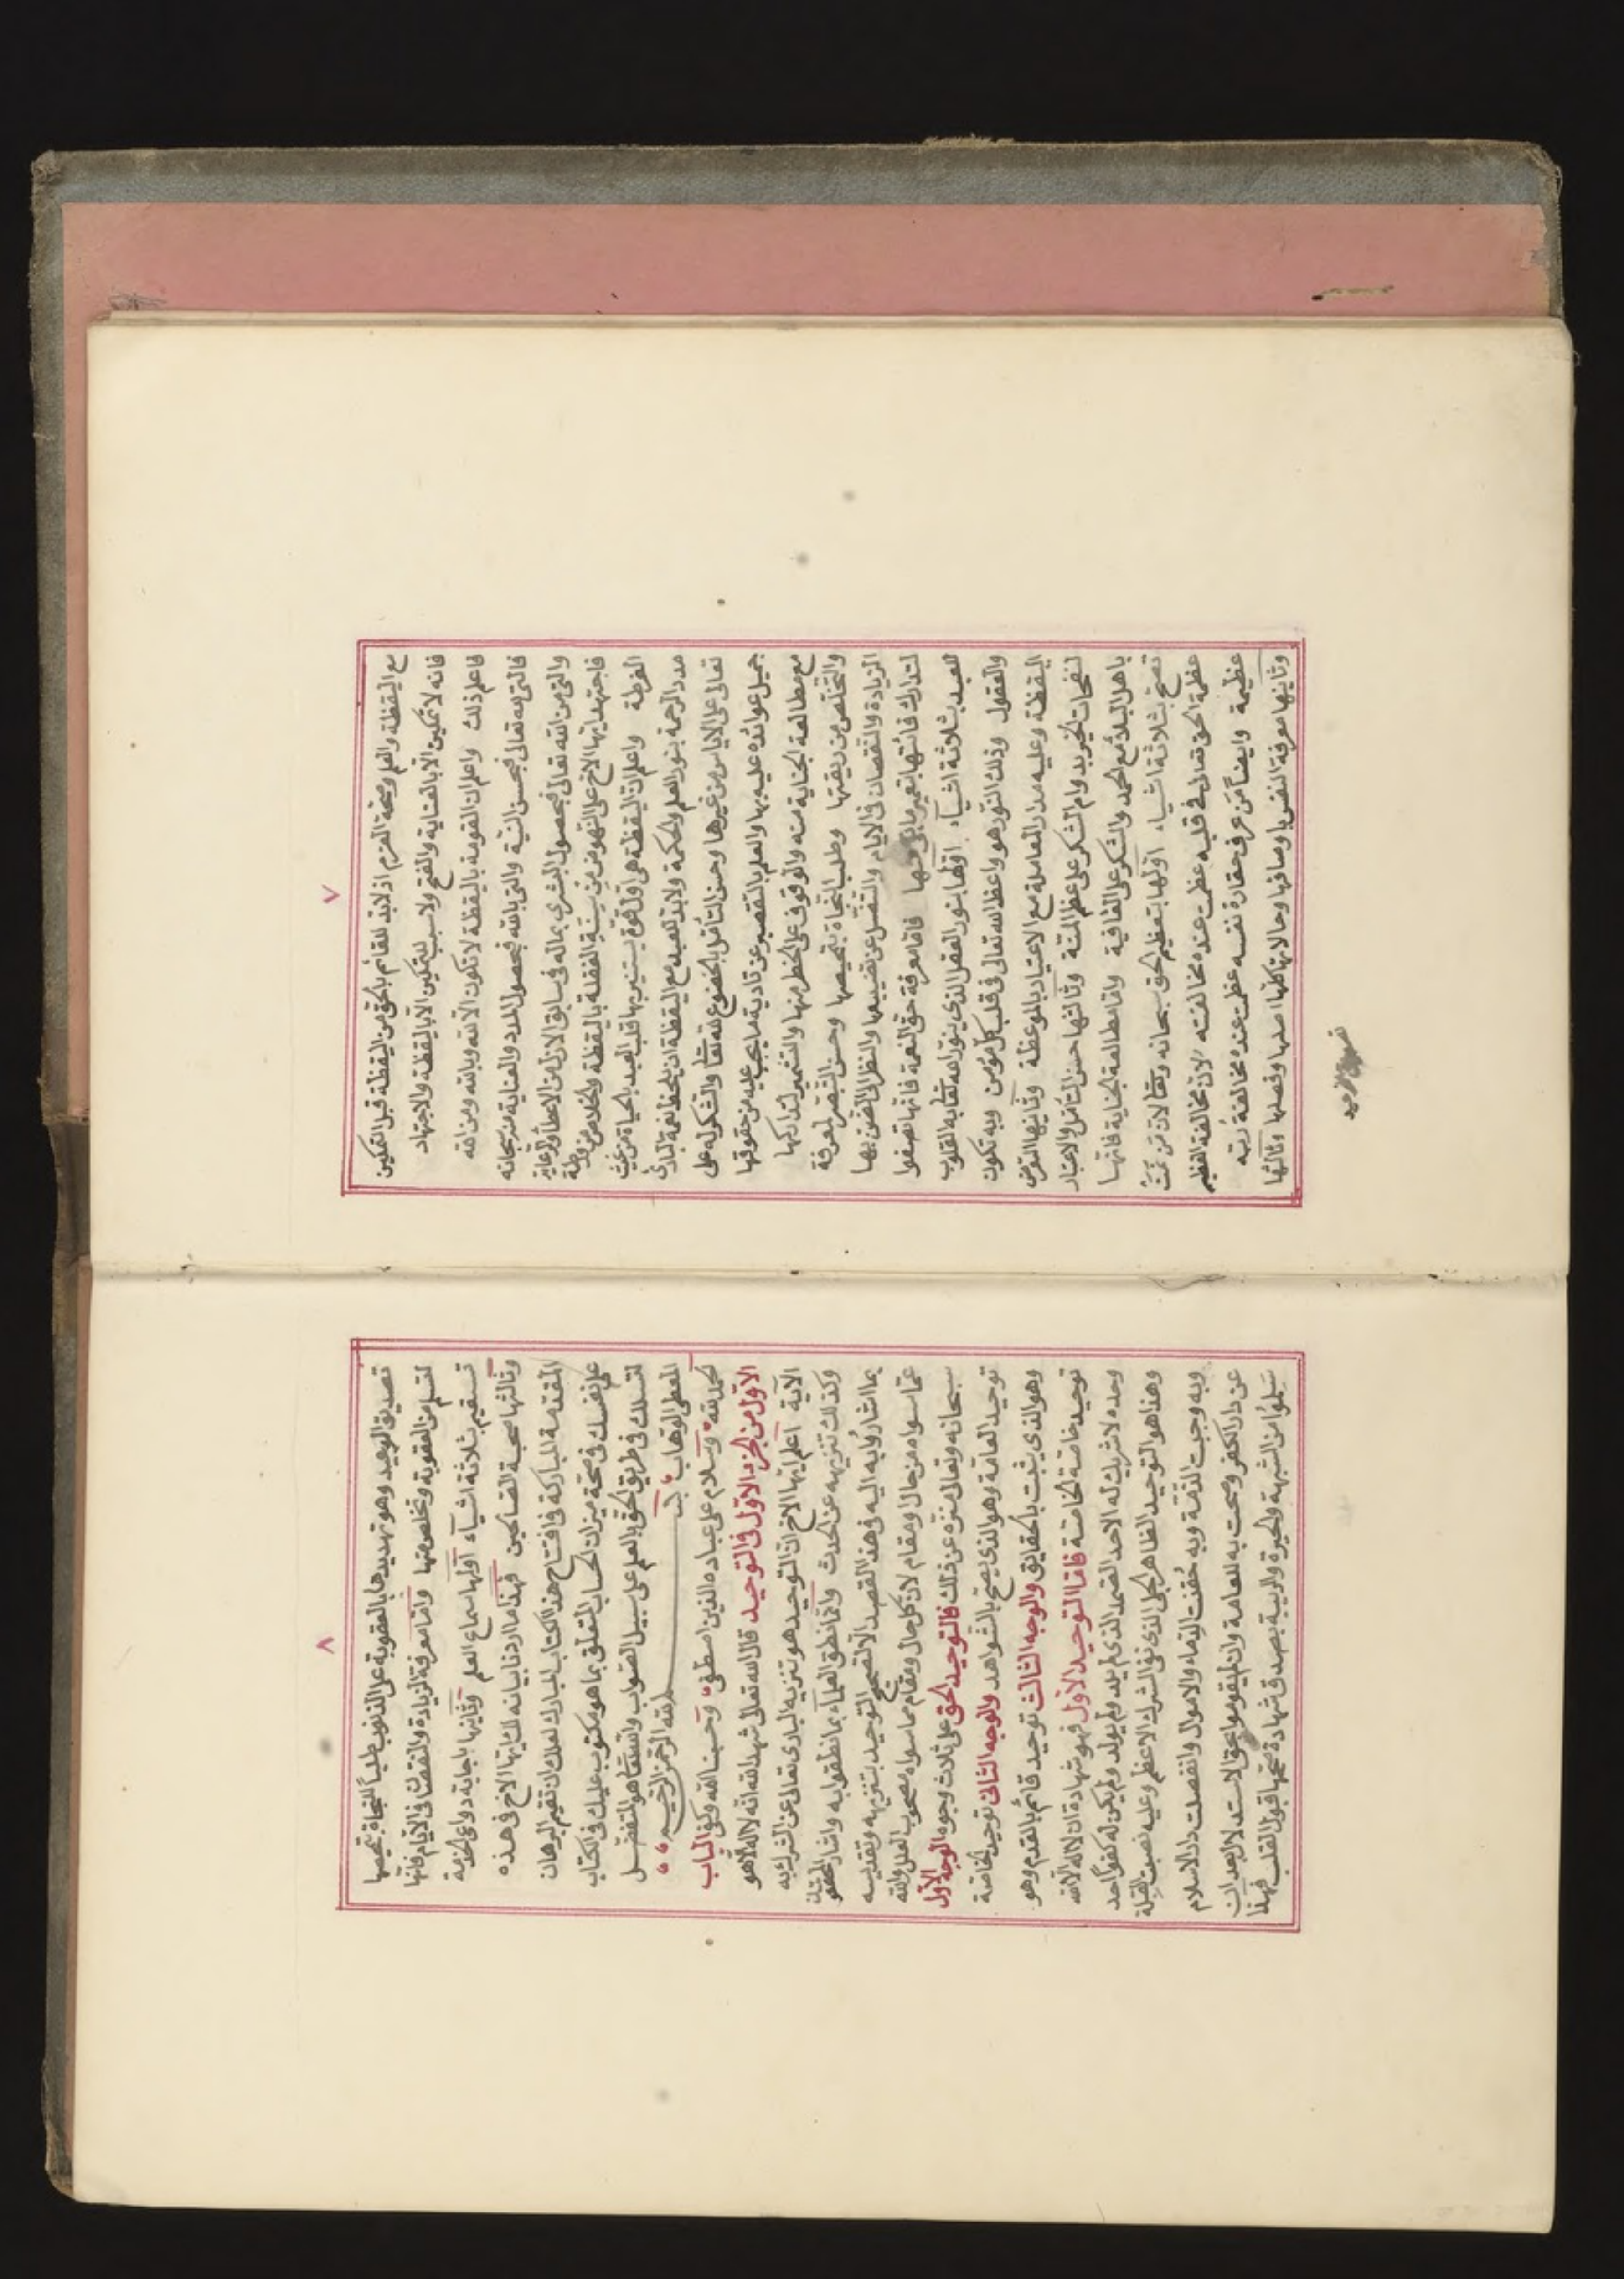 ٧
مع اليقظة والعلم وصحة العزم اذ لابد للقائم بالحق من اليقظة قبل التمكين
فانه لا تمكين الا بالعناية والفتح ولا سبب للتمكين الا باليقظة والاجتهاد
فاعلم ذلك واعلم ان القومة باليقظة لا تكون الا لله وبالله ومن الله
فالتى لله تعالى فبحسن النية والتى بالله فبحصول المدد والعناية منه سبحانه
والتى من الله تعالى فبحصول البشرى بماله فى سابق الازل من الاعطاء والرعاية
فاجتهد ايها الاخ على النهوض من سِنَةِ الغفلة باليقظة والخلاص من ورطة
الفرطة واعلم ان اليقظة هى اول قوة يستنير بها قلب العبد بالحياة من غيث
مدد الرحمة بنور العلم والحكمة ولا بد للعبد مع اليقظة ان يلحظ نعمة البارئ
تعالى على الاياس من غيرها وحسن التأمل بالخضوع لله تعالى والشكر له على
جميل عوائده عليه بها والعلم بالتقصير عن تادية ما يجب عليه من حقوقها
مع مطالعة الجناية منه والوقوف على الخطر منها والتشمير لتداركها
والتخلص من ربقتها وطلب النجاة بتمحيصها وحسن التبصر لمعرفة
الزيادة والنقصان فى الايام والتنصل عن تضييعها والنظر الى الضن بها
لتدارك فائتها بتعمير باقى منها فاما معرفة حق النعمة فانها تصفوا
للعبد بثلاثة اشياء اولها بنور العقل الذى ينور الله تعالى به القلوب
والعقول وذلك النور هو واعظ الله تعالى فى قلب كل مؤمن وبه تكون
اليقظة وعليه مدار المعاملة مع الاعتياد بالموعظة وثانيها التعرض
لنفحات الخير بدوام الشكر على عظم المنة وثالثها حسن التأمل والاعتبار
باهل البلاء مع الحمد والشكر على العافية واما مطالعة الجناية فانها
تصح بثلاثة اشياء اولها بتعظيم الحق سبحانه وتعالى لان من تمت
عظمة الحق تعالى فى قلبه عظمت عنده مخالفته لان مخالفة العظيم
عظيمة وايضاً من عرف حقارة نفسه عظمت عنده مخالفة ربه
وثانيها معرفة النفس باوصافها وحالاتها كلها اصلها وفصلها وثالثها
٨
تصديق الوعيد وهو تهديدها بالعقوبة على الذنوب طلباً للنجاة بتمحيصها
لتسلم من العقوبة وتخلص منها واما معرفة الزيادة والنقصان فى الايام فانها
تستقيم بثلاثة اشياء اولها سماع العلم وثانيها باجابة دواعى الخدمة
وثالثها صحبة الصالحين فهذا ما اردنا بيانه لك ايها الاخ فى هذه
المقدمة المباركة فى افتتاح هذا الكتاب المبارك لعلك ان تقيم البرهان
على نفسك فى صحة ميزان الحساب المتعلق بما هو مكتوب عليك فى الكتاب
لتسلك فى طريق الحق بالعلم على سبيل الصواب والله تعالى هو المتفضل
المعطى الوهاب بسم الله الرحمن الرحيم
الحمد لله وسلام على عباده الذين اصطفى وحسبنا الله وكفى الباب
الاول من الجزء الاول فى التوحيد قال الله تعالى شهد الله انه لا اله الا هو
الآية اعلم ايها الاخ ان التوحيد هو تنزيه البارى تعالى عن الشرك به
وكذلك تنزيهه عن الحدث وانما نطق العلماء بما نطقوا به واشار المحققون
بما اشاروا به اليه فى هذا القصد الا لتصحيح التوحيد بتنزيهه وتقديسه
عما سواه من حال ومقام لان كل حال ومقام مما سواه مصحوب العلل والله
سبحانه وتعالى منزه عن ذلك فالتوحيد الحق على ثلاث وجوه الوجه الاول
توحيد العامة وهو الذى يصح بالشواهد والوجه الثانى توحيد الخاصة
وهو الذى يثبت بالحقايق والوجه الثالث توحيد قائم بالقدم وهو
توحيد خاصة الخاصة فاما التوحيد الاول فهو شهادة ان لا اله الا الله
وحده لا شريك له الاحد الصمد الذى لم يلد ولم يولد ولم يكن له كفوا احد
وهذا هو التوحيد الظاهر الجلى الذى نفى الشرك الاعظم وعليه نصبت القبلة
وبه وجبت الذمة وبه حقنت الدماء والاموال وانفصلت دار الاسلام
عن دار الكفر وصحت به للعامة وان لم يقوموا بحق الاستدلال بعد ان
سَلِموا من الشبهة والحيرة والريبة بصدق شهادة صححها قبول القلب فهذا